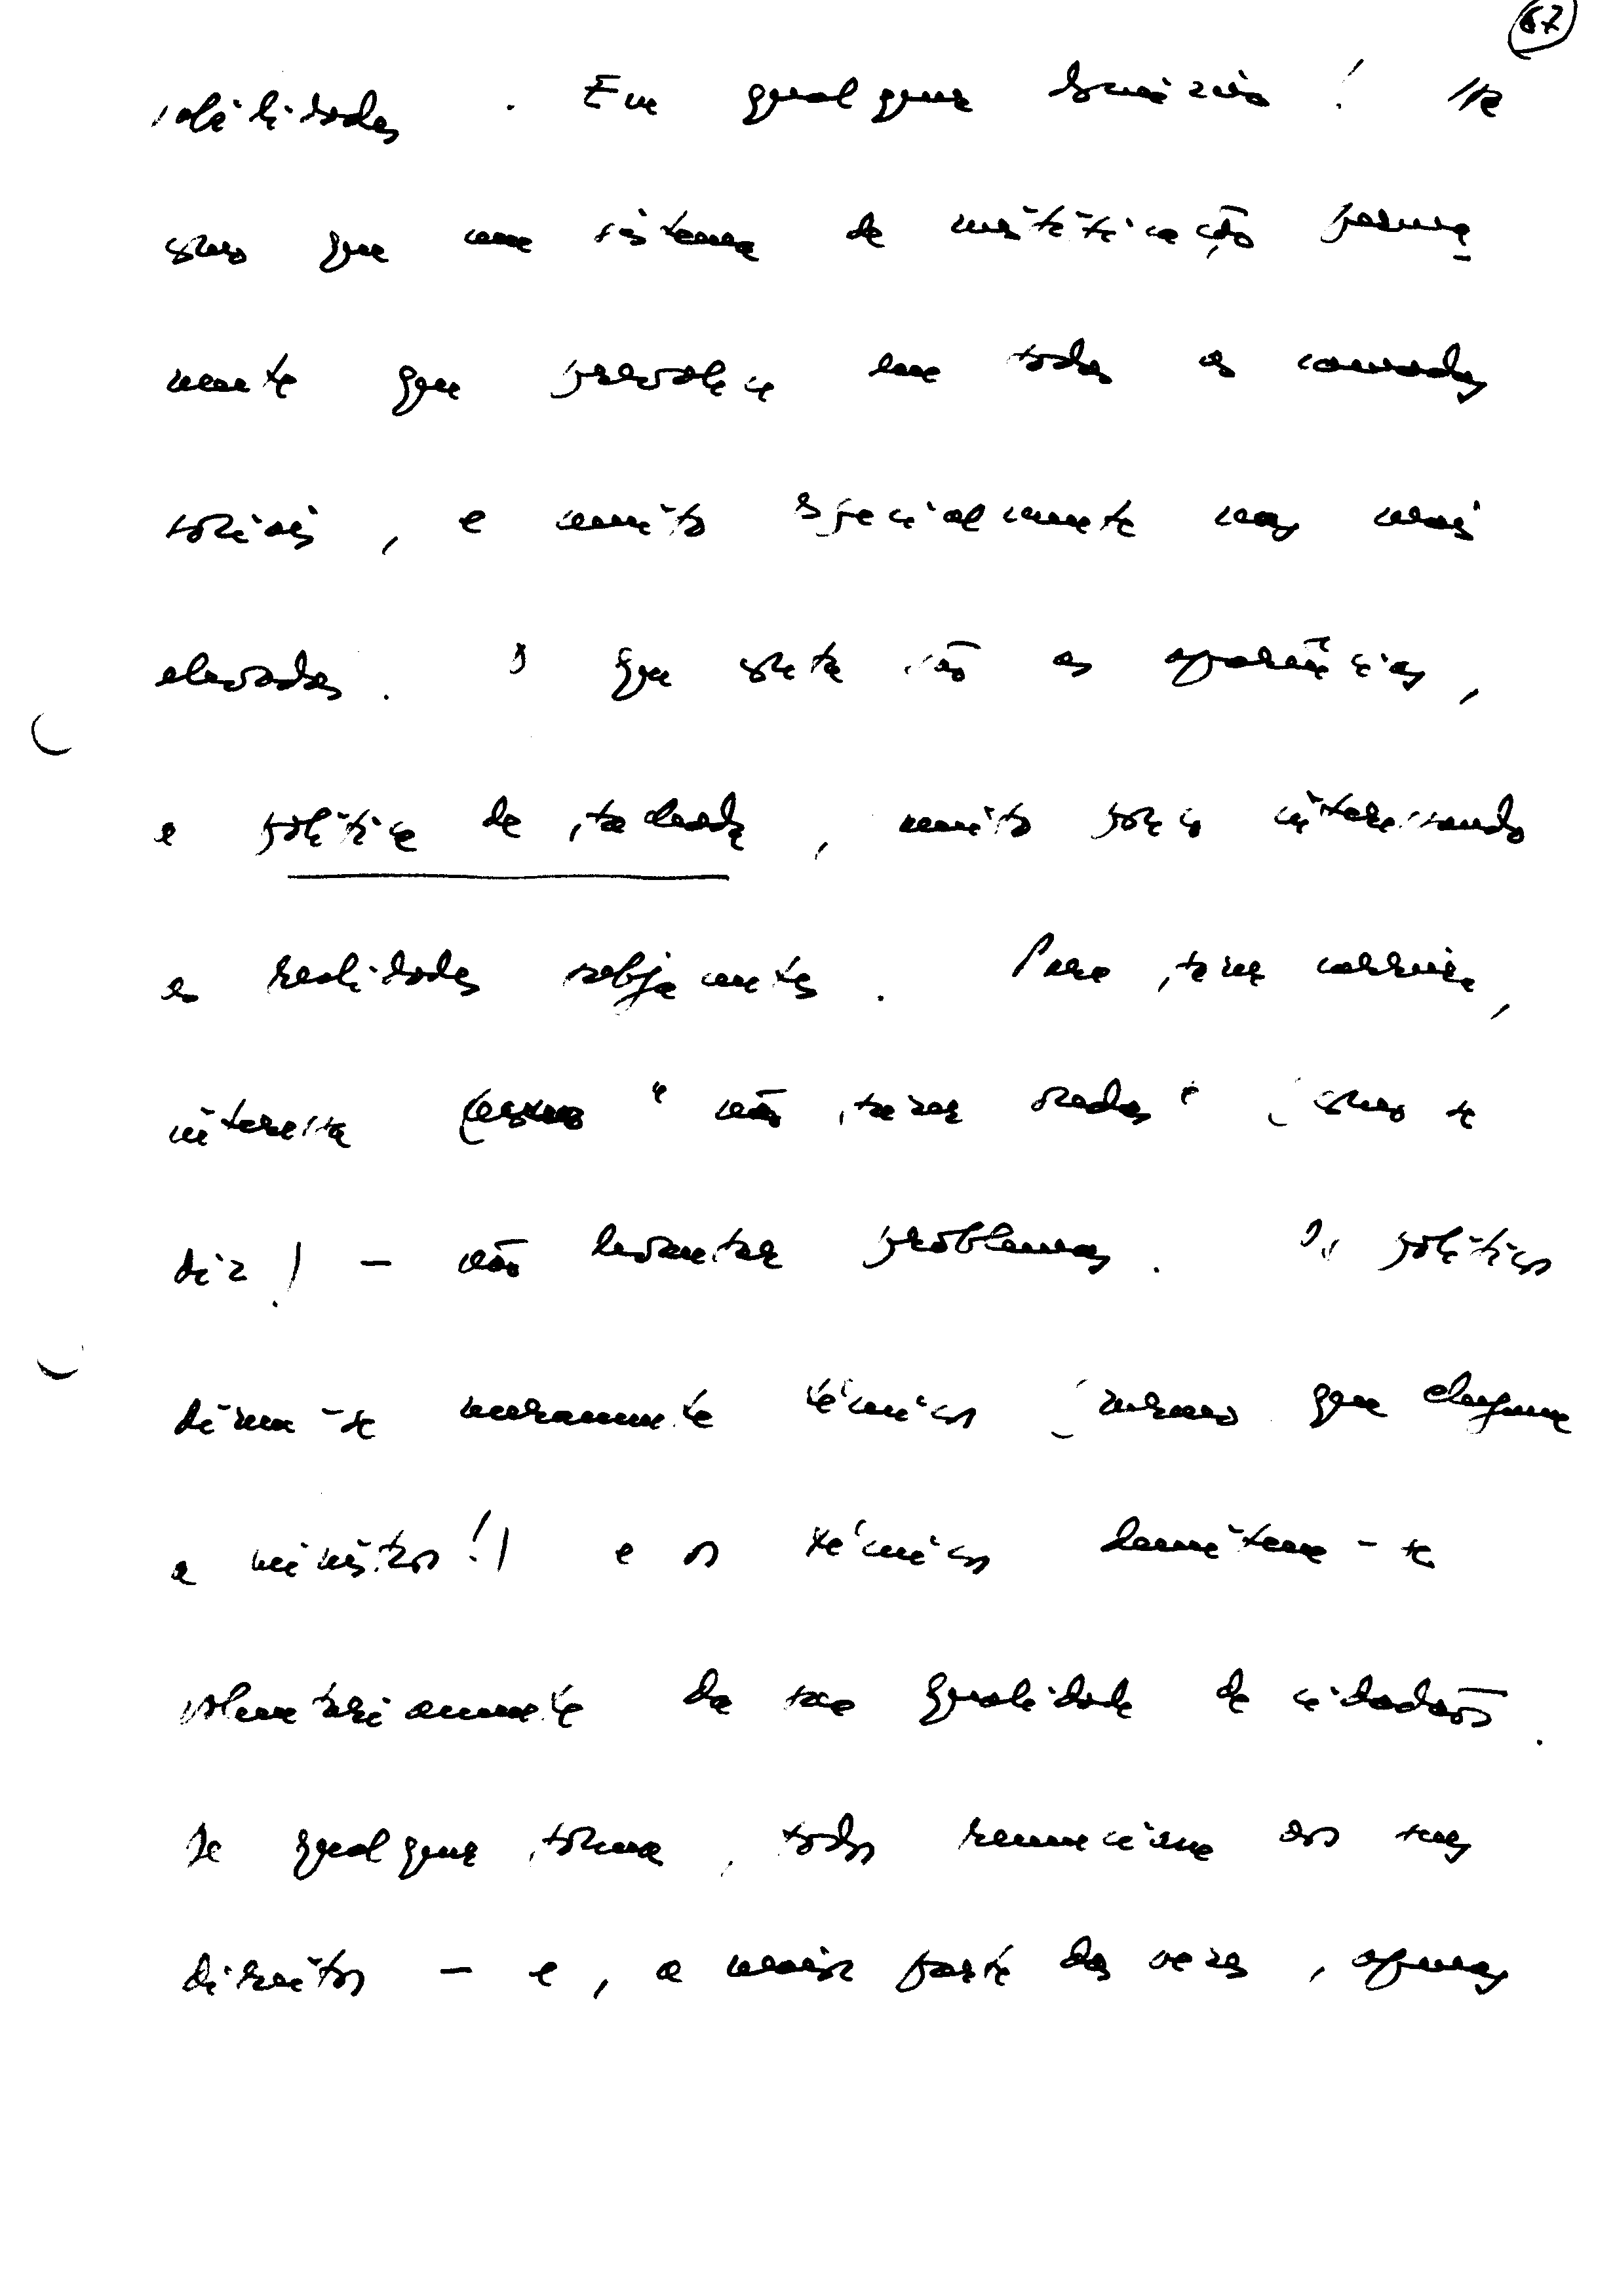 67
sabilidades. Em qualquer domínio! Há
como que um sistema de mistificação perma-
nente que prevalece em todas as camadas
sociais, e muito especialmente nas mais
elevadas. O que conta são as aparências,
a política de fachada, muito pouco interessando
as realidades subjacentes. Para fazer carreira,
interessa "não fazer ondas" (como se
diz!) — não levantar problemas. Os políticos
dizem-se meramente técnicos (mesmo que cheguem
a ministros!) e os técnicos demitem-se
voluntariamente da sua qualidade de cidadãos.
De qualquer forma, todos renunciam aos seus
direitos — e, a maior parte das vezes, apenas